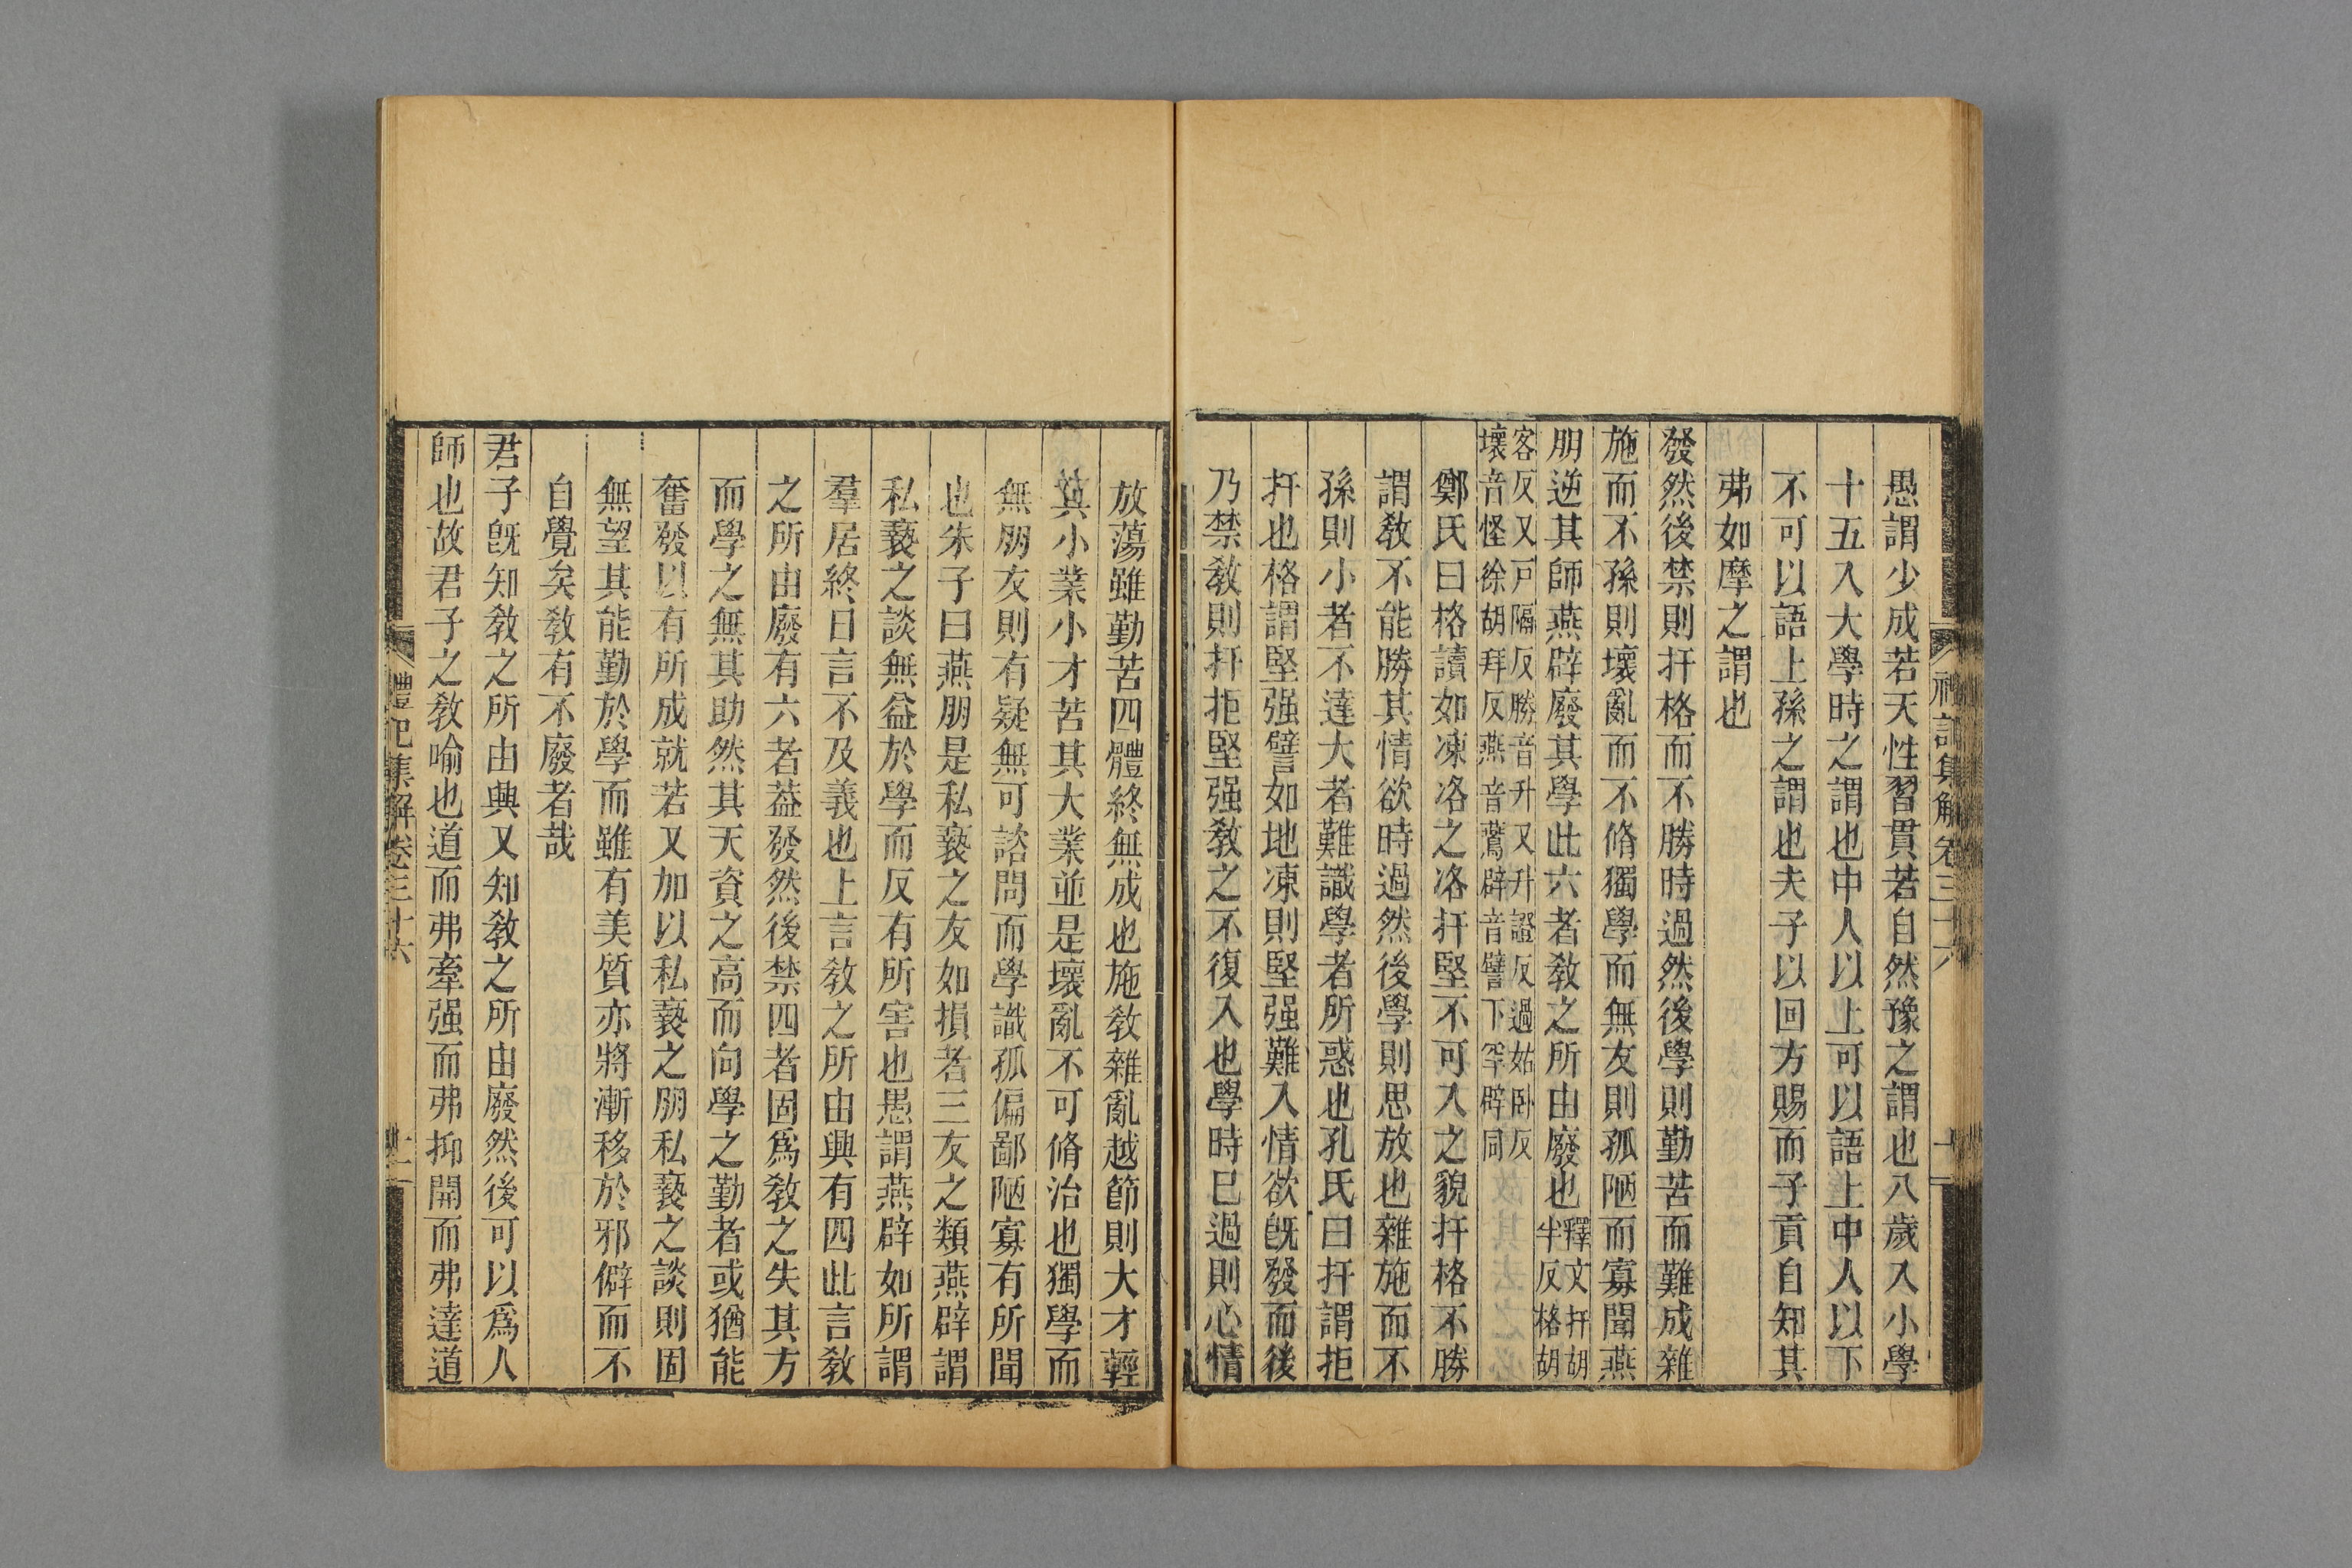 愚謂少成若天性習貫若自然豫之謂也八歲入小學
十五入大學時之謂也中人以上可以語上中人以下
不可以語上孫之謂也夫子以回方賜而子貢自知其
弗如摩之謂也
發然後禁則扞格而不勝時過然後學則勤苦而難成雜
施而不孫則壞亂而不脩獨學而無友則孤陋而寡聞燕
朋逆其師燕辟廢其學此六者敎之所由廢也釋文扞胡半反格胡
客反又戸隔反勝音升又升證反過姑卧反
壞音怪徐胡拜反燕音鷰辟音譬下罕辟同
鄭氏曰格讀如凍㓗之㓗扞堅不可入之貌扞格不勝
謂敎不能勝其情欲時過然後學則思放也雜施而不
孫則小者不達大者難識學者所惑也孔氏曰扞謂拒
扞也格謂堅强譬如地凍則堅强難入情欲旣發而後
乃禁敎則扞拒堅强敎之不復入也學時已過則心情
放蕩雖勤苦四體終無成也施敎雜亂越節則大才輕
其小業小才苦其大業並是壞亂不可脩治也獨學而
無朋友則有疑無可諮問而學識孤偏鄙陋寡有所聞
也朱子曰燕朋是私褻之友如損者三友之類燕辟謂
私褻之談無益於學而反有所害也愚謂燕辟如所謂
羣居終日言不及義也上言敎之所由興有四此言敎
之所由廢有六者葢發然後禁四者固爲敎之失其方
而學之無其助然其天資之高而向學之勤者或猶能
奮發以有所成就若又加以私褻之朋私褻之談則固
無望其能勤於學而雖有美質亦將漸移於邪僻而不
自覺矣敎有不廢者哉
君子旣知敎之所由興又知敎之所由廢然後可以爲人
師也故君子之敎喻也道而弗牽强而弗抑開而弗達道
禮記集解卷三十六